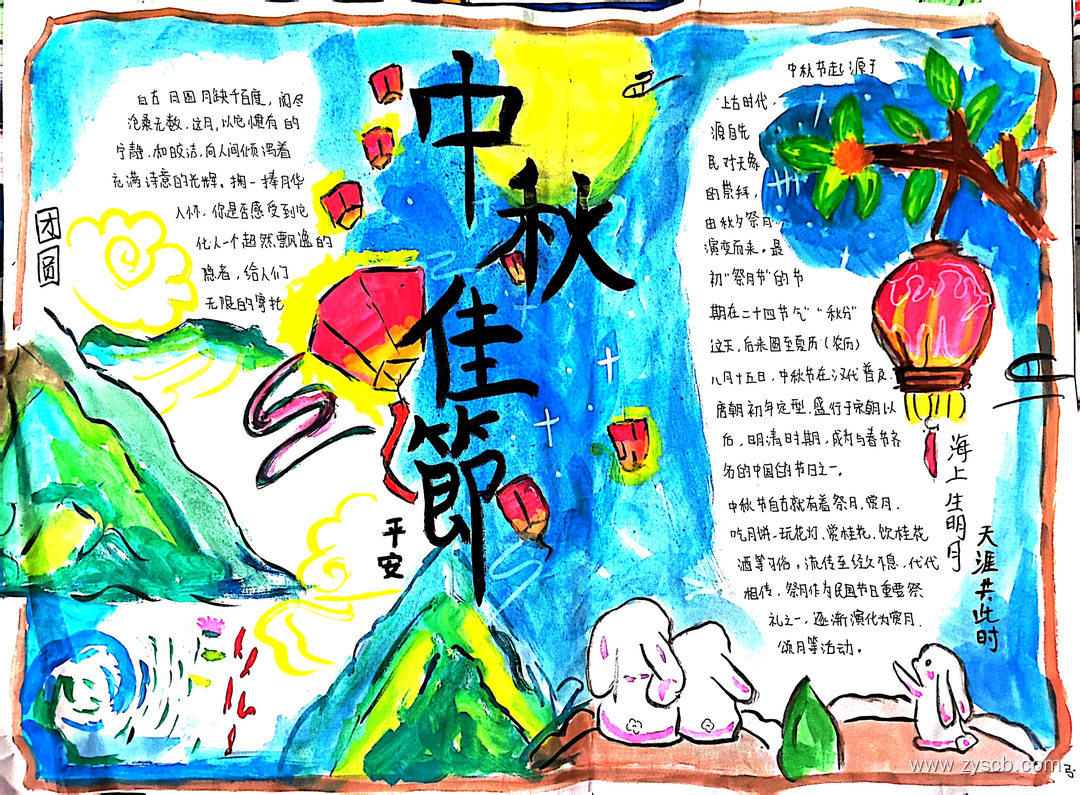 中秋佳節
团圆
自古月圆月缺千百度，阅尽
沧桑无数。这月，以它惯有的
宁静、和皎洁，向人间倾泻着
充满诗意的光辉。掬一捧月华
入怀，你是否感受到它
化人一个超然飘逸的
隐者，给人们
无限的寄托
平安
中秋节起源于
上古时代，
源自先
民对天象
的崇拜，
由秋夕祭月
演变而来。最
初“祭月节”的节
期在二十四节气“秋分”
这天，后来
至夏历（农历）
八月十五日，中秋节在汉代普及，
唐朝初年定型，盛行于宋朝以
后，明清时期，成为与春节齐
名的中国的节日之一。
中秋节自古就有着祭月、赏月、
吃月饼、玩花灯、赏桂花、饮桂花
酒等习俗，流传至今经久不息，代代
相传，祭月作为民国节日重要祭
礼之一，逐渐演化为赏月、
颂月等活动。
海上生明月
天涯共此时
www.zyscb.com